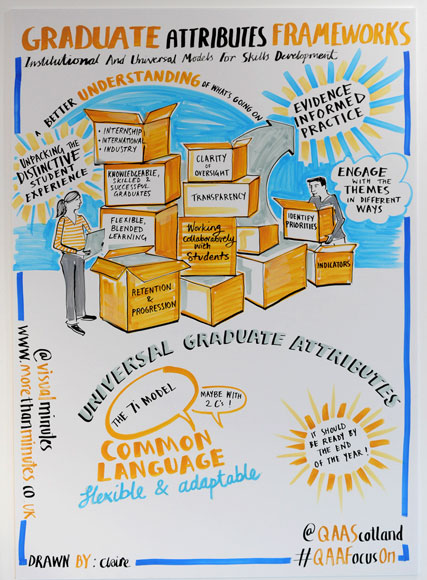 GRADUATE ATTRIBUTES FRAMEWORKS
Institutional And Universal Models For Skills Development
A BETTER UNDERSTANDING OF WHAT'S GOING ON
EVIDENCE
INFORMED
PRACTICE
UNPACKING THE
DISTINCTIVE
STUDENT
EXPERIENCE
• INTERNSHIP
• INTERNATIONAL
• INDUSTRY
CLARITY
OF
OVERSIGHT
ENGAGE
WITH THE
THEMES
IN DIFFERENT
WAYS
KNOWLEDGEABLE,
SKILLED &
SUCCESSFUL
GRADUATES
TRANSPARENCY
FLEXIBLE,
BLENDED
LEARNING
Working
collaboratively
with
Students
IDENTIFY
PRIORITIES
RETENTION
&
PROGRESSION
INDICATORS
UNIVERSAL GRADUATE ATTRIBUTES
THE 7i MODEL
MAYBE WITH
2 C's !
COMMON
LANGUAGE
flexible & adaptable
IT SHOULD
BE READY BY
THE END
OF THE YEAR!
@visualminutes
www.morethanminutes.co.uk
DRAWN BY: Claire
@QAAScotland
#QAAFocusOn